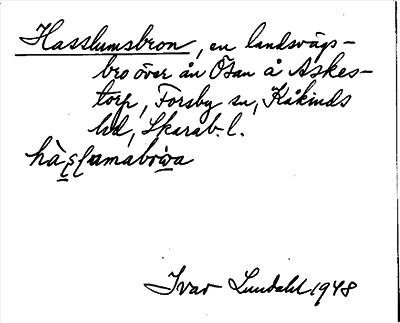 Hasslumsbron, en landsvägs-
bro över ån Ösan å Askes-
torp, Forsby sn, Kåkinds
hd, Skarab. l.
hàslumabrωa
Ivar Lundahl 1948